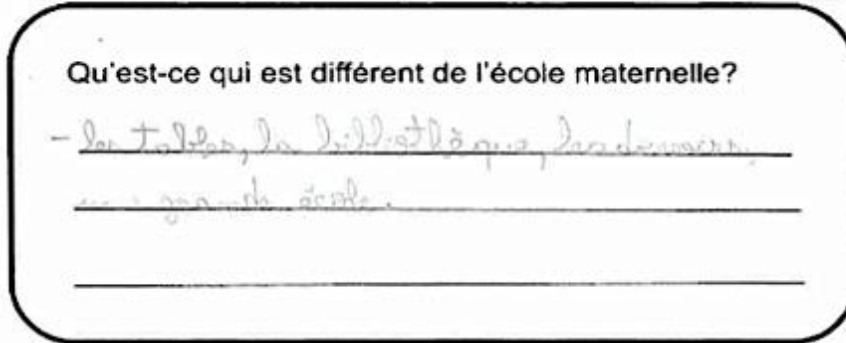 Qu'est-ce qui est différent de l'école maternelle?
- les tables, la bibliothèque, les
grande école.